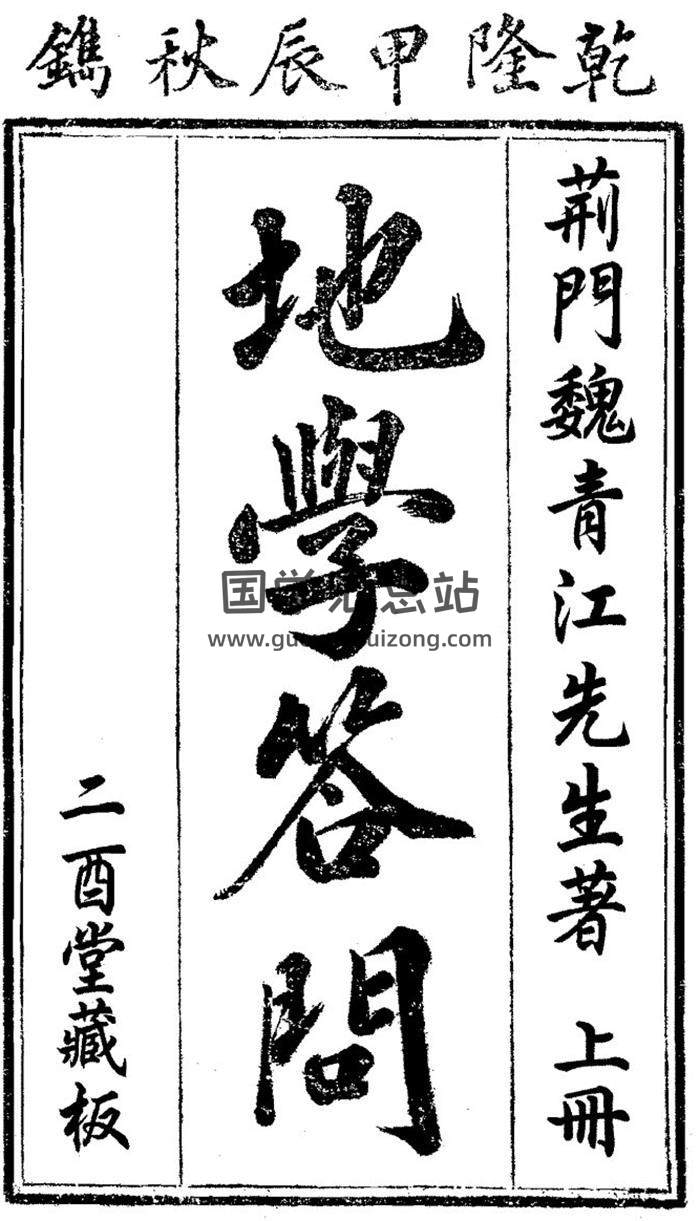 乾隆甲辰秋鐫
荆門魏青江先生著 上冊
地學答問
二酉堂藏板
国学汇总站